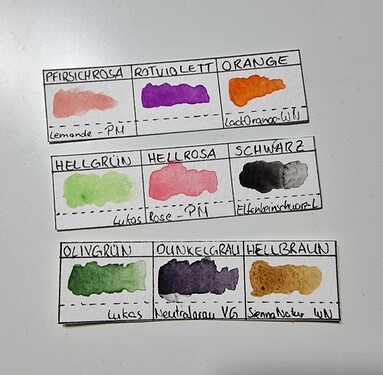 PFIRSICHROSA ROTVIOLETT ORANGE
Lemande - PM LackOrange-WN
HELLGRÜN HELLROSA SCHWARZ
Lukas Rose - PM Elfenbeinschwarz-L
OLIVGRÜN DUNKELGRAU HELLBRAUN
Lukas Neutralgrau VG Sienna Natur WN